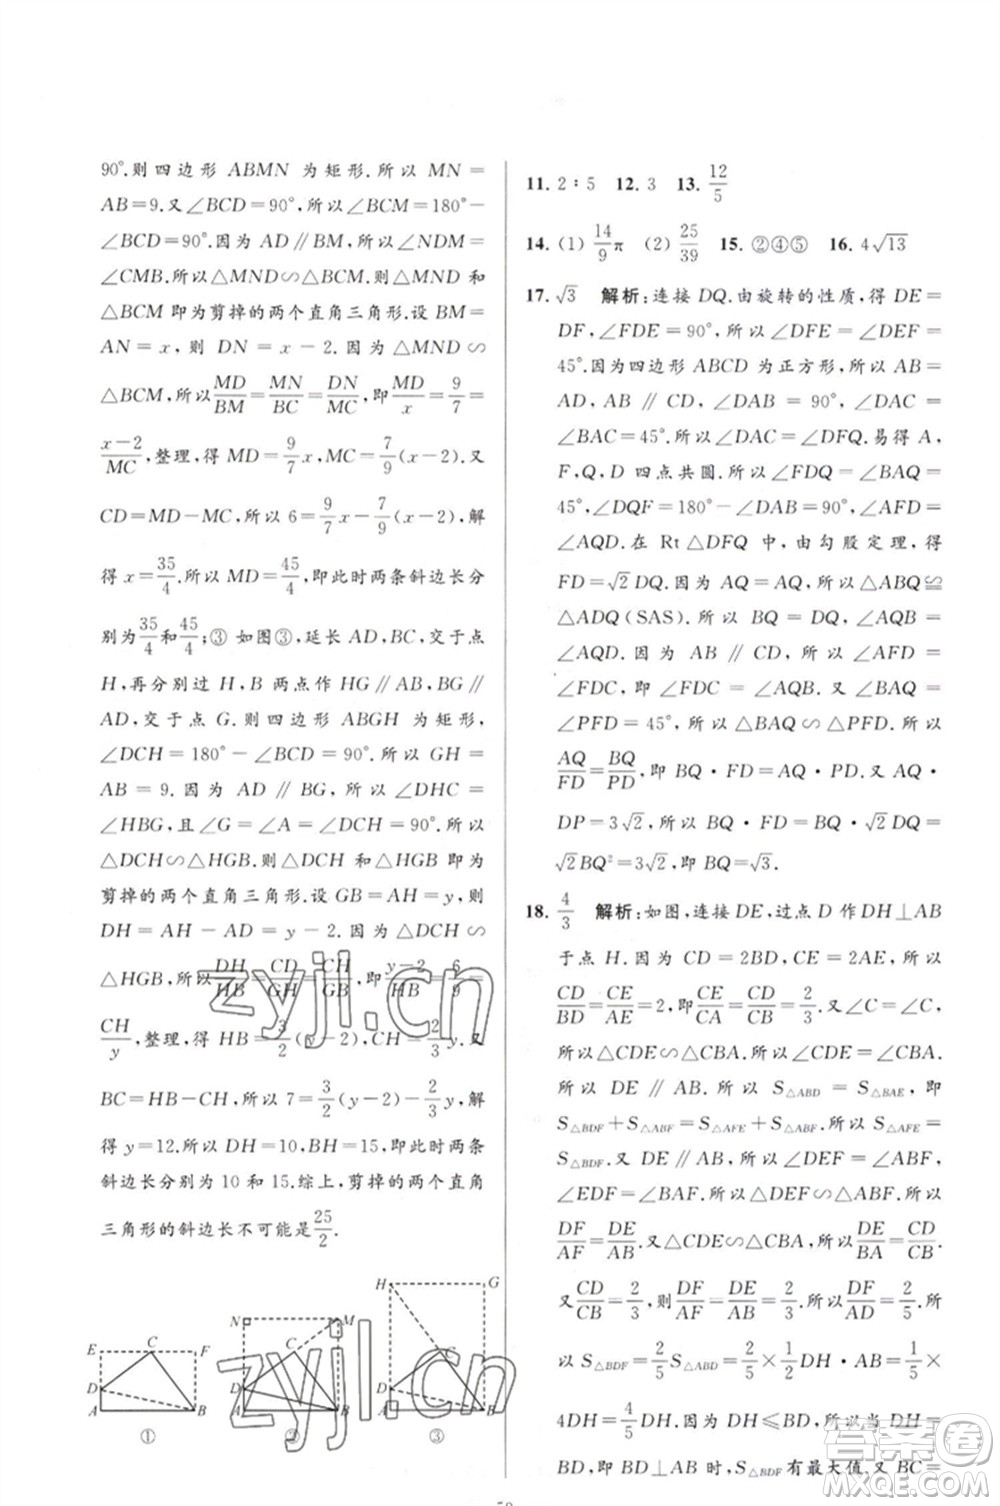 90°.则四边形 ABMN 为矩形.所以 MN=
AB=9.又∠BCD=90°,所以∠BCM=180°-
∠BCD=90°.因为 AD∥BM,所以∠MDC=
∠CMB.所以△MND∽△BCM.则△MND 和
△BCM 即为剪掉的两个直角三角形.设 BM=
AN=x,则 DN=x-2.因为△MND∽
△BCM,所以MD/BM=MN/BC=DN/MC,即MD/x=9/7=
(x-2)/MC,整理,得 MD=9/7x,MC=7/9(x-2).又
CD=MD-MC,所以 6=9/7x-7/9(x-2),解
得 x=35/4.所以 MD=45/4,即此时两条斜边长分
别为35/4和45/4;③ 如图③,延长 AD,BC,交于点
H,再分别过 H,B 两点作 HG∥AB,BG∥
AD,交于点 G.则四边形 ABGH 为矩形,
∠DCH=180°-∠BCD=90°.所以 GH=
AB=9.因为 AD∥BG,所以∠DHC=
∠HBG,且∠G=∠A=∠DCH=90°.所以
△DCH∽△HGB.则△DCH 和△HGB 即为
剪掉的两个直角三角形.设 GB=AH=y,则
DH=AH-AD=y-2.因为△DCH∽
△HGB,所以DH/HB=CD/GH=CH/GB,即(y-2)/HB=6/9=
CH/y,整理,得 HB=3/2(y-2),CH=2/3y.又
BC=HB-CH,所以 7=3/2(y-2)-2/3y,解
得 y=12.所以 DH=10,BH=15.即此时两条
斜边长分别为 10 和 15.综上,剪掉的两个直角
三角形的斜边长不可能是25/2.
E C F D A B ①
N M C D A B ②
H G C D A B ③
11. 2∶5 12. 3 13. 12/5
14. (1) 14/9π (2) 25/39 15. ②④⑤ 16. 4√13
17. √3 解析:连接 DQ.由旋转的性质,得 DE=
DF,∠FDE=90°,所以∠DFE=∠DEF=
45°.因为四边形 ABCD 为正方形,所以 AB=
AD,AB∥CD,∠DAB=90°,∠DAC=
∠BAC=45°.所以∠DAC=∠DFQ.易得 A,
F,Q,D 四点共圆.所以∠FDQ=∠BAQ=
45°,∠DQF=180°-∠DAB=90°,∠AFD=
∠AQD.在 Rt△DFQ 中,由勾股定理,得
FD=√2DQ.因为 AQ=AQ,所以△ABQ≌
△ADQ(SAS).所以 BQ=DQ,∠AQB=
∠AQD.因为 AB∥CD,所以∠AFD=
∠FDC,即∠FDC=∠AQB.又∠BAQ=
∠PFD=45°,所以△BAQ∽△PFD.所以
AQ/FD=BQ/PD,即 BQ·FD=AQ·PD.又 AQ·
DP=3√2,所以 BQ·FD=BQ·√2DQ=
√2BQ²=3√2,所以 BQ=√3.
18. 4/3 解析:如图,连接 DE,过点 D 作 DH⊥AB
于点 H.因为 CD=2BD,CE=2AE,所以
CD/BD=CE/AE=2,即CE/CA=CD/CB=2/3.又∠C=∠C,
所以△CDE∽△CBA.所以∠CDE=∠CBA.
所以 DE∥AB.所以 S△ABD=S△BAE,即
S△BDF+S△ABF=S△AFE+S△ABF.所以 S△AFE=
S△BDF.又 DE∥AB,所以∠DEF=∠ABF,
∠EDF=∠BAF.所以△DEF∽△ABF.所以
DF/AF=DE/AB.又△CDE∽△CBA,所以DE/BA=CD/CB.
又CD/CB=2/3,则DF/AF=DE/AB=2/3,所以DF/AD=2/5.所
以 S△BDF=2/5S△ABD=2/5×1/2DH·AB=1/5×
4DH=4/5DH.因为 DH≤BD,所以当 DH=
BD,即 BD⊥AB 时,S△BDF有最大值.又 BC=
zyjl.cn
zyjl.cn
答案圈
MXQE.COM